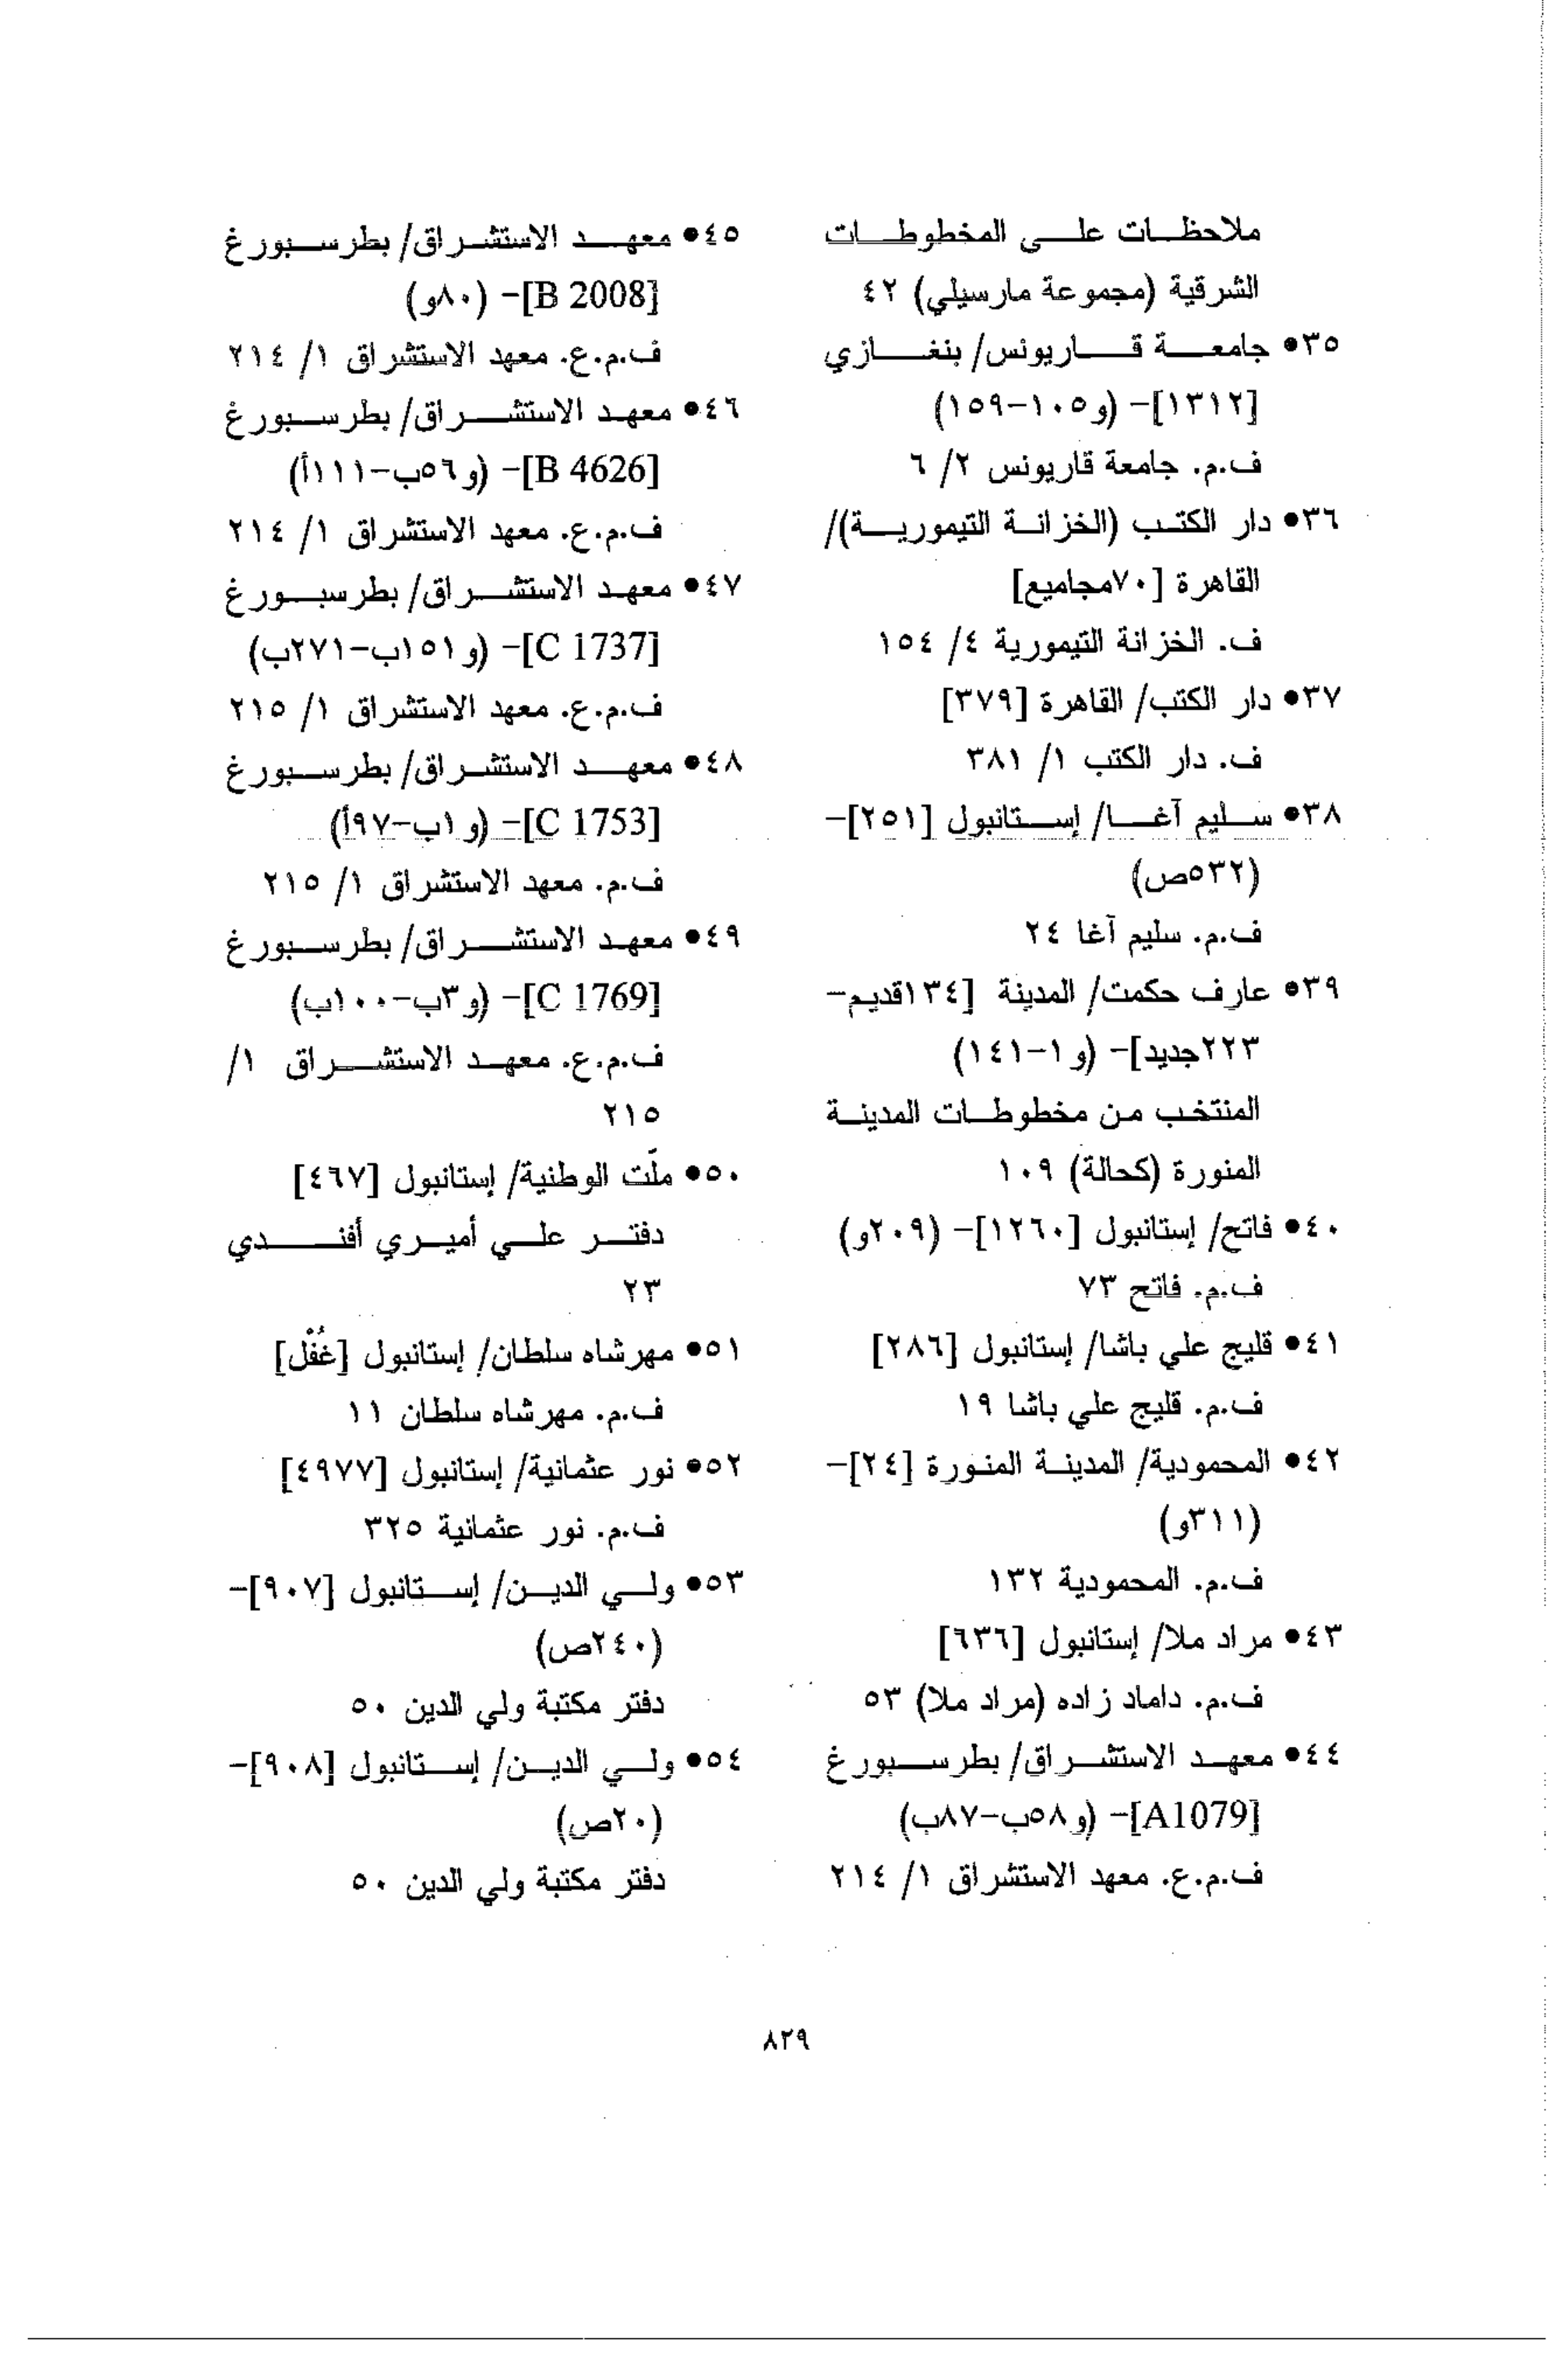 ملاحظات على المخطوطات
الشرقية (مجموعة مارسيلي) ٤٢
٣٥• جامعة قاريونس/ بنغازي
[١٣١٢]- (و١٠٥-١٥٩)
ف.م. جامعة قاريونس ٢/ ٦
٣٦• دار الكتب (الخزانة التيمورية)/
القاهرة [٧٠مجاميع]
ف. الخزانة التيمورية ٤/ ١٥٤
٣٧• دار الكتب/ القاهرة [٣٧٩]
ف. دار الكتب ١/ ٣٨١
٣٨• سليم آغا/ إستانبول [٢٥١]-
(٥٣٢ص)
ف.م. سليم آغا ٢٤
٣٩• عارف حكمت/ المدينة [١٣٤قديم-
٢٢٣جديد]- (و١-١٤١)
المنتخب من مخطوطات المدينة
المنورة (كحالة) ١٠٩
٤٠• فاتح/ إستانبول [١٢٦٠]- (٢٠٩و)
ف.م. فاتح ٧٣
٤١• قليج علي باشا/ إستانبول [٢٨٦]
ف.م. قليج علي باشا ١٩
٤٢• المحمودية/ المدينة المنورة [٢٤]-
(٣١١و)
ف.م. المحمودية ١٣٢
٤٣• مراد ملا/ إستانبول [٦٣٦]
ف.م. داماد زاده (مراد ملا) ٥٣
٤٤• معهد الاستشراق/ بطرسبورغ
[A1079]- (و٥٨ب-٨٧ب)
ف.م.ع. معهد الاستشراق ١/ ٢١٤
٤٥• معهد الاستشراق/ بطرسبورغ
[B 2008]- (٨٠و)
ف.م.ع. معهد الاستشراق ١/ ٢١٤
٤٦• معهد الاستشراق/ بطرسبورغ
[B 4626]- (و٥٦ب-١١١أ)
ف.م.ع. معهد الاستشراق ١/ ٢١٤
٤٧• معهد الاستشراق/ بطرسبورغ
[C 1737]- (و١٥١ب-٢٧١ب)
ف.م.ع. معهد الاستشراق ١/ ٢١٥
٤٨• معهد الاستشراق/ بطرسبورغ
[C 1753]- (و١ب-٩٧أ)
ف.م. معهد الاستشراق ١/ ٢١٥
٤٩• معهد الاستشراق/ بطرسبورغ
[C 1769]- (و٣ب-١٠٠ب)
ف.م.ع. معهد الاستشراق ١/
٢١٥
٥٠• ملّت الوطنية/ إستانبول [٤٦٧]
دفتر علي أميري أفندي
٢٣
٥١• مهرشاه سلطان/ إستانبول [غُفْل]
ف.م. مهرشاه سلطان ١١
٥٢• نور عثمانية/ إستانبول [٤٩٧٧]
ف.م. نور عثمانية ٣٢٥
٥٣• ولي الدين/ إستانبول [٩٠٧]-
(٢٤٠ص)
دفتر مكتبة ولي الدين ٥٠
٥٤• ولي الدين/ إستانبول [٩٠٨]-
(٢٠ص)
دفتر مكتبة ولي الدين ٥٠
٨٢٩